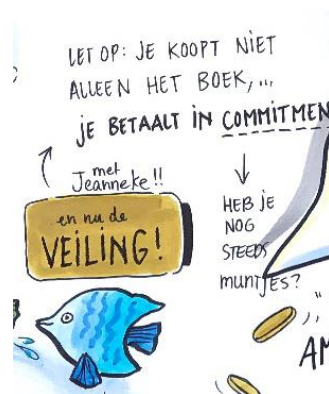 LET OP: JE KOOPT NIET
ALLEEN HET BOEK,...
JE BETAALT IN COMMITMEN
met
Jeanneke!!
en nu de
VEILING!
HEB JE
NOG
STEEDS
MUNTJES?
AM